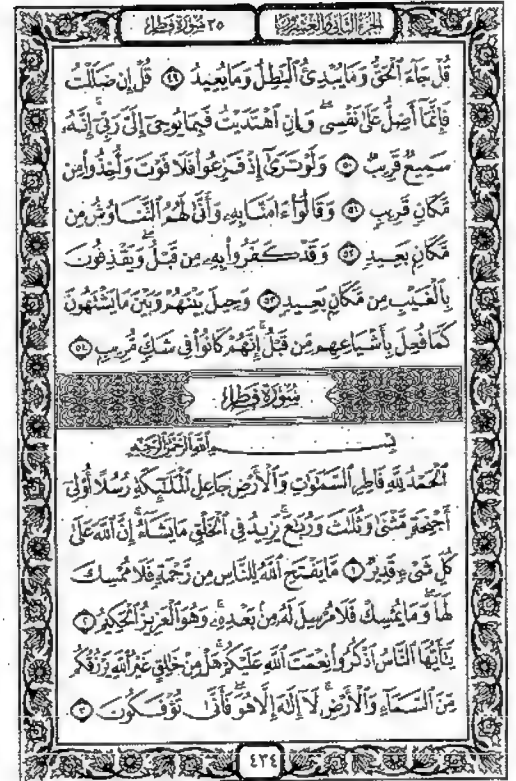 الجزء الثاني والعشرون
٣٥ سورة فاطر
قُلْ جَآءَ ٱلْحَقُّ وَمَا يُبْدِئُ ٱلْبَٰطِلُ وَمَا يُعِيدُ ٤٩ قُلْ إِن ضَلَلْتُ
فَإِنَّمَآ أَضِلُّ عَلَىٰ نَفْسِى وَإِنِ ٱهْتَدَيْتُ فَبِمَا يُوحِىٓ إِلَىَّ رَبِّىٓ إِنَّهُۥ
سَمِيعٌ قَرِيبٌ ٥٠ وَلَوْ تَرَىٰٓ إِذْ فَزِعُوا۟ فَلَا فَوْتَ وَأُخِذُوا۟ مِن
مَّكَانٍ قَرِيبٍ ٥١ وَقَالُوٓا۟ ءَامَنَّا بِهِۦ وَأَنَّىٰ لَهُمُ ٱلتَّنَاوُشُ مِن
مَّكَانٍۭ بَعِيدٍ ٥٢ وَقَدْ كَفَرُوا۟ بِهِۦ مِن قَبْلُ وَيَقْذِفُونَ
بِٱلْغَيْبِ مِن مَّكَانٍۭ بَعِيدٍ ٥٣ وَحِيلَ بَيْنَهُمْ وَبَيْنَ مَا يَشْتَهُونَ
كَمَا فُعِلَ بِأَشْيَاعِهِم مِّن قَبْلُ إِنَّهُمْ كَانُوا۟ فِى شَكٍّ مُّرِيبٍۭ ٥٤
سُورَةُ فَاطِرٍ
بِسْمِ ٱللَّهِ ٱلرَّحْمَٰنِ ٱلرَّحِيمِ
ٱلْحَمْدُ لِلَّهِ فَاطِرِ ٱلسَّمَٰوَٰتِ وَٱلْأَرْضِ جَاعِلِ ٱلْمَلَٰٓئِكَةِ رُسُلًا أُو۟لِىٓ
أَجْنِحَةٍ مَّثْنَىٰ وَثُلَٰثَ وَرُبَٰعَ يَزِيدُ فِى ٱلْخَلْقِ مَا يَشَآءُ إِنَّ ٱللَّهَ عَلَىٰ
كُلِّ شَىْءٍ قَدِيرٌ ١ مَّا يَفْتَحِ ٱللَّهُ لِلنَّاسِ مِن رَّحْمَةٍ فَلَا مُمْسِكَ
لَهَا وَمَا يُمْسِكْ فَلَا مُرْسِلَ لَهُۥ مِنۢ بَعْدِهِۦ وَهُوَ ٱلْعَزِيزُ ٱلْحَكِيمُ ٢
يَٰٓأَيُّهَا ٱلنَّاسُ ٱذْكُرُوا۟ نِعْمَتَ ٱللَّهِ عَلَيْكُمْ هَلْ مِنْ خَٰلِقٍ غَيْرُ ٱللَّهِ يَرْزُقُكُم
مِّنَ ٱلسَّمَآءِ وَٱلْأَرْضِ لَآ إِلَٰهَ إِلَّا هُوَ فَأَنَّىٰ تُؤْفَكُونَ ٣
٤٣٤